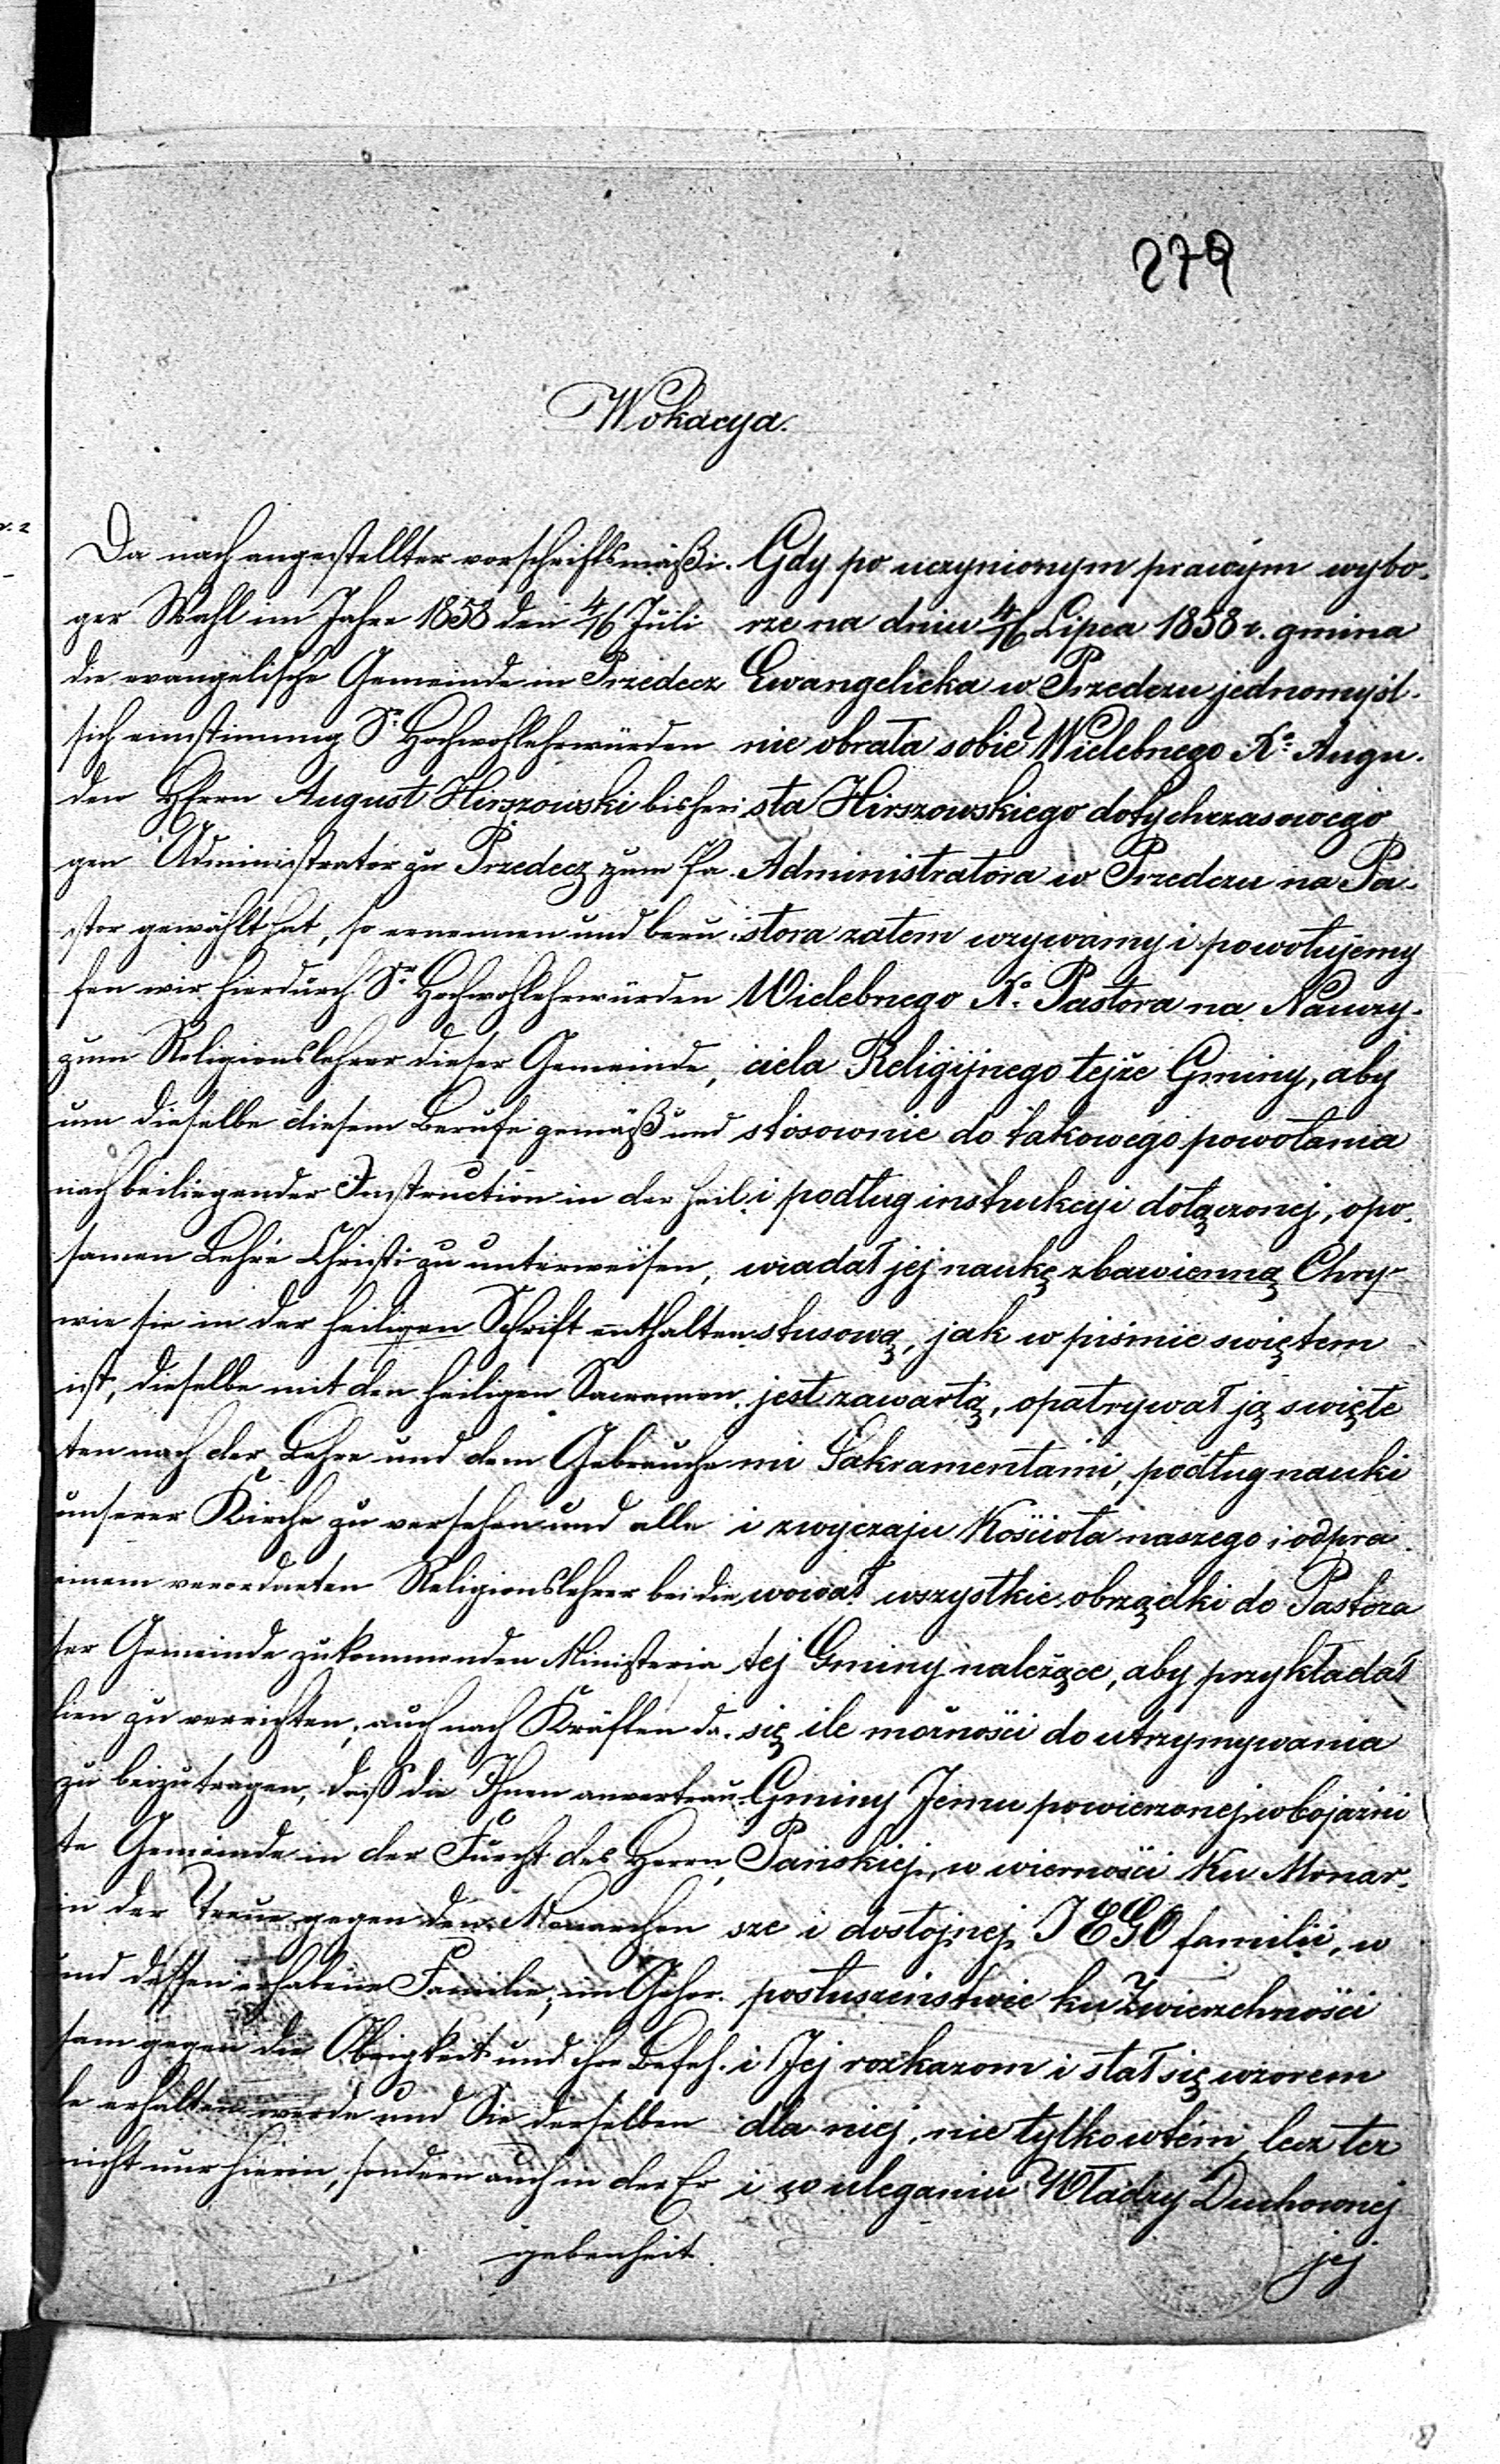 279
Wokacya.
Da nach angestellter vorschriftsmäßi-
ger Wahl im Jahre 1858 den 4/16 Juli
die evangelische Gemeinde in Przedecz
sich einstimmig Sr Hochwohlehrwürden
den Herrn August Hirszowski bisheri-
gen Administrator zu Przedecz zum Pa-
stor gewählt hat, so ernennen und beru-
fen wir hierdurch Sr Hochwohlehrwürden
zum Religionslehrer dieser Gemeinde,
um dieselbe diesem Berufe gemäß und
nach beiliegender Instruction in der heil-
samen Lehre Christi zu unterweisen,
wie sie in der heiligen Schrift enthalten
ist, dieselbe mit den heiligen Sacramen-
ten nach der Lehre und dem Gebrauche
unserer Kirche zu versehen und alle
einem verordneten Religionslehrer bei die
ser Gemeinde zukommenden Ministeria
lien zu verrichten, auch nach Kräften da-
zu beizutragen, daß die Ihnen anvertrau-
te Gemeinde in der Furcht des Herrn,
in der Treue gegen den Monarchen
und dessen erhabene Familie, im Gehor-
sam gegen die Obrigkeit und ihre Befeh-
le erhalten werde und Sie derselben
nicht nur hierin, sondern auch in der Er
gebenheit
Gdy po uczynionym prawym wybo-
rze na dniu 4/16 Lipca 1858 r. gmina
Ewangelicka w Przedczu jednomyśl-
nie obrała sobie Wielebnego Xo Augu-
sta Hirszowskiego dotychczasowego
Administratora w Przedczu na Pa-
stora zatem wzywamy i powołujemy
Wielebnego Xo Pastora na Nauczy-
ciela Religijnego tejże Gminy, aby
stosownie do takowego powołania
i podług instukcyi dołączonej, opo-
wiadał jej naukę zbawienną Chry-
stusową, jak w piśmie swiętem
jest zawartą, opatrywał ją swięte
mi Sakramentami, podług nauki
i zwyczaju Kościoła naszego i odpra-
wował wszystkie obrządki do Pastora
tej Gminy należące, aby przykładał
się ile możności do utrzymywania
Gminy Jemu powierzonej w bojaźni
Pańskiej, w wierności Ku Monar-
sze i dostojnej JEGO familii, w
posłuszeństwie ku Zwierzchności
i Jej rozkazom i stał się wzorem
dla niej, nie tylko w tém, lecz tez
i w uleganiu Władzy Duchownej
jej